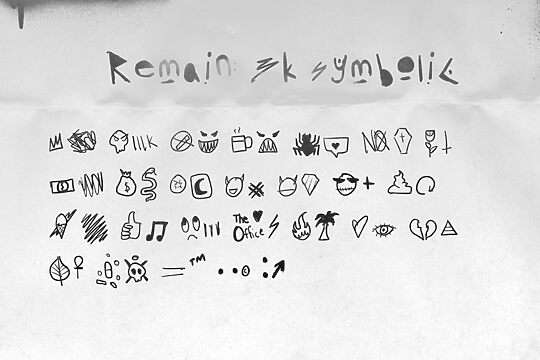 Remain 3k symbolic
The
Office
TM